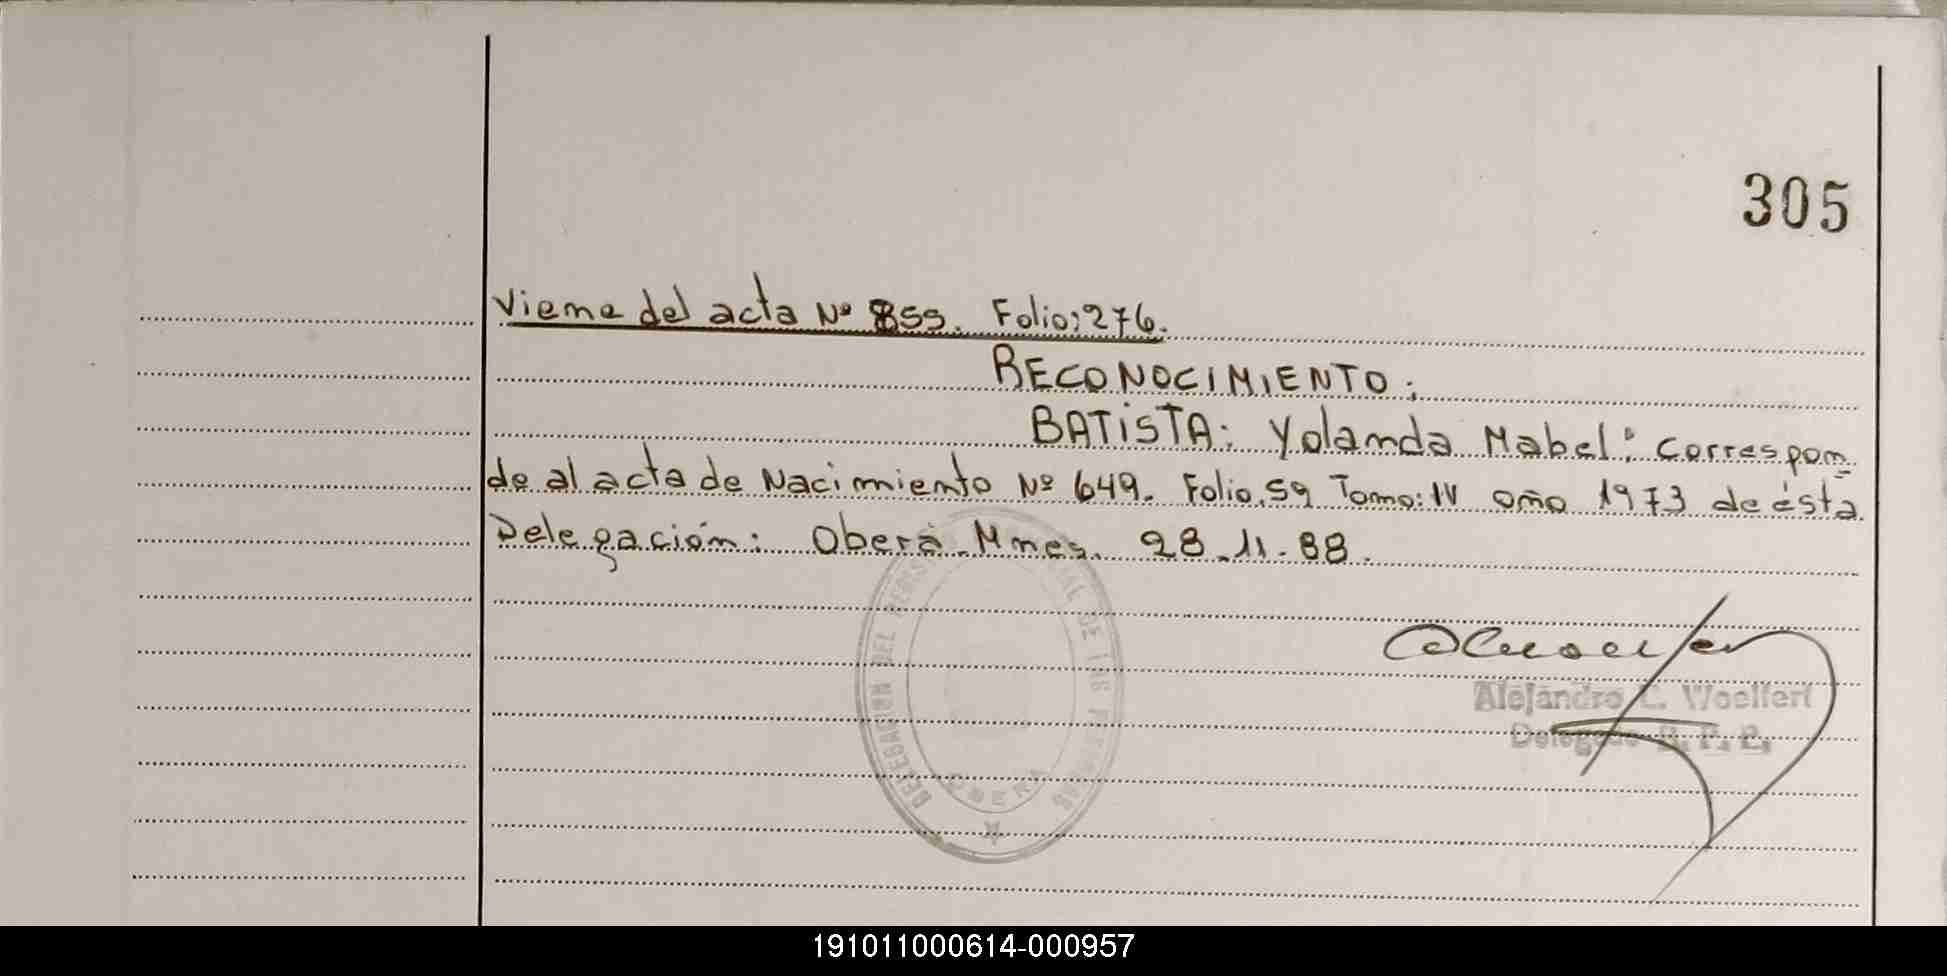 305
Viene del acta Nº 859. Folio: 276.
RECONOCIMIENTO:
BATISTA: Yolanda Mabel: Correspon
de al acta de Nacimiento Nº 649. Folio. 59 Tomo: IV año 1973 de ésta
Delegación: Oberá. Mnes. 28.11.88.
Alejandro C. Woelfert
Delegado R. P. P.
DELEGACION DEL REGISTRO PROVINCIAL DE LAS PERSONAS
OBERA
191011000614-000957